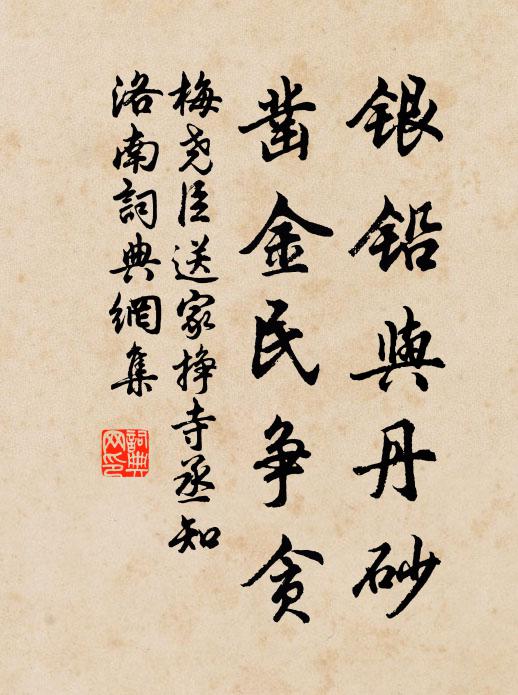 銀鉛與丹砂
凿金民争贪
梅尧臣送家挣寺丞知
洛南詞典網集
詞典
网印